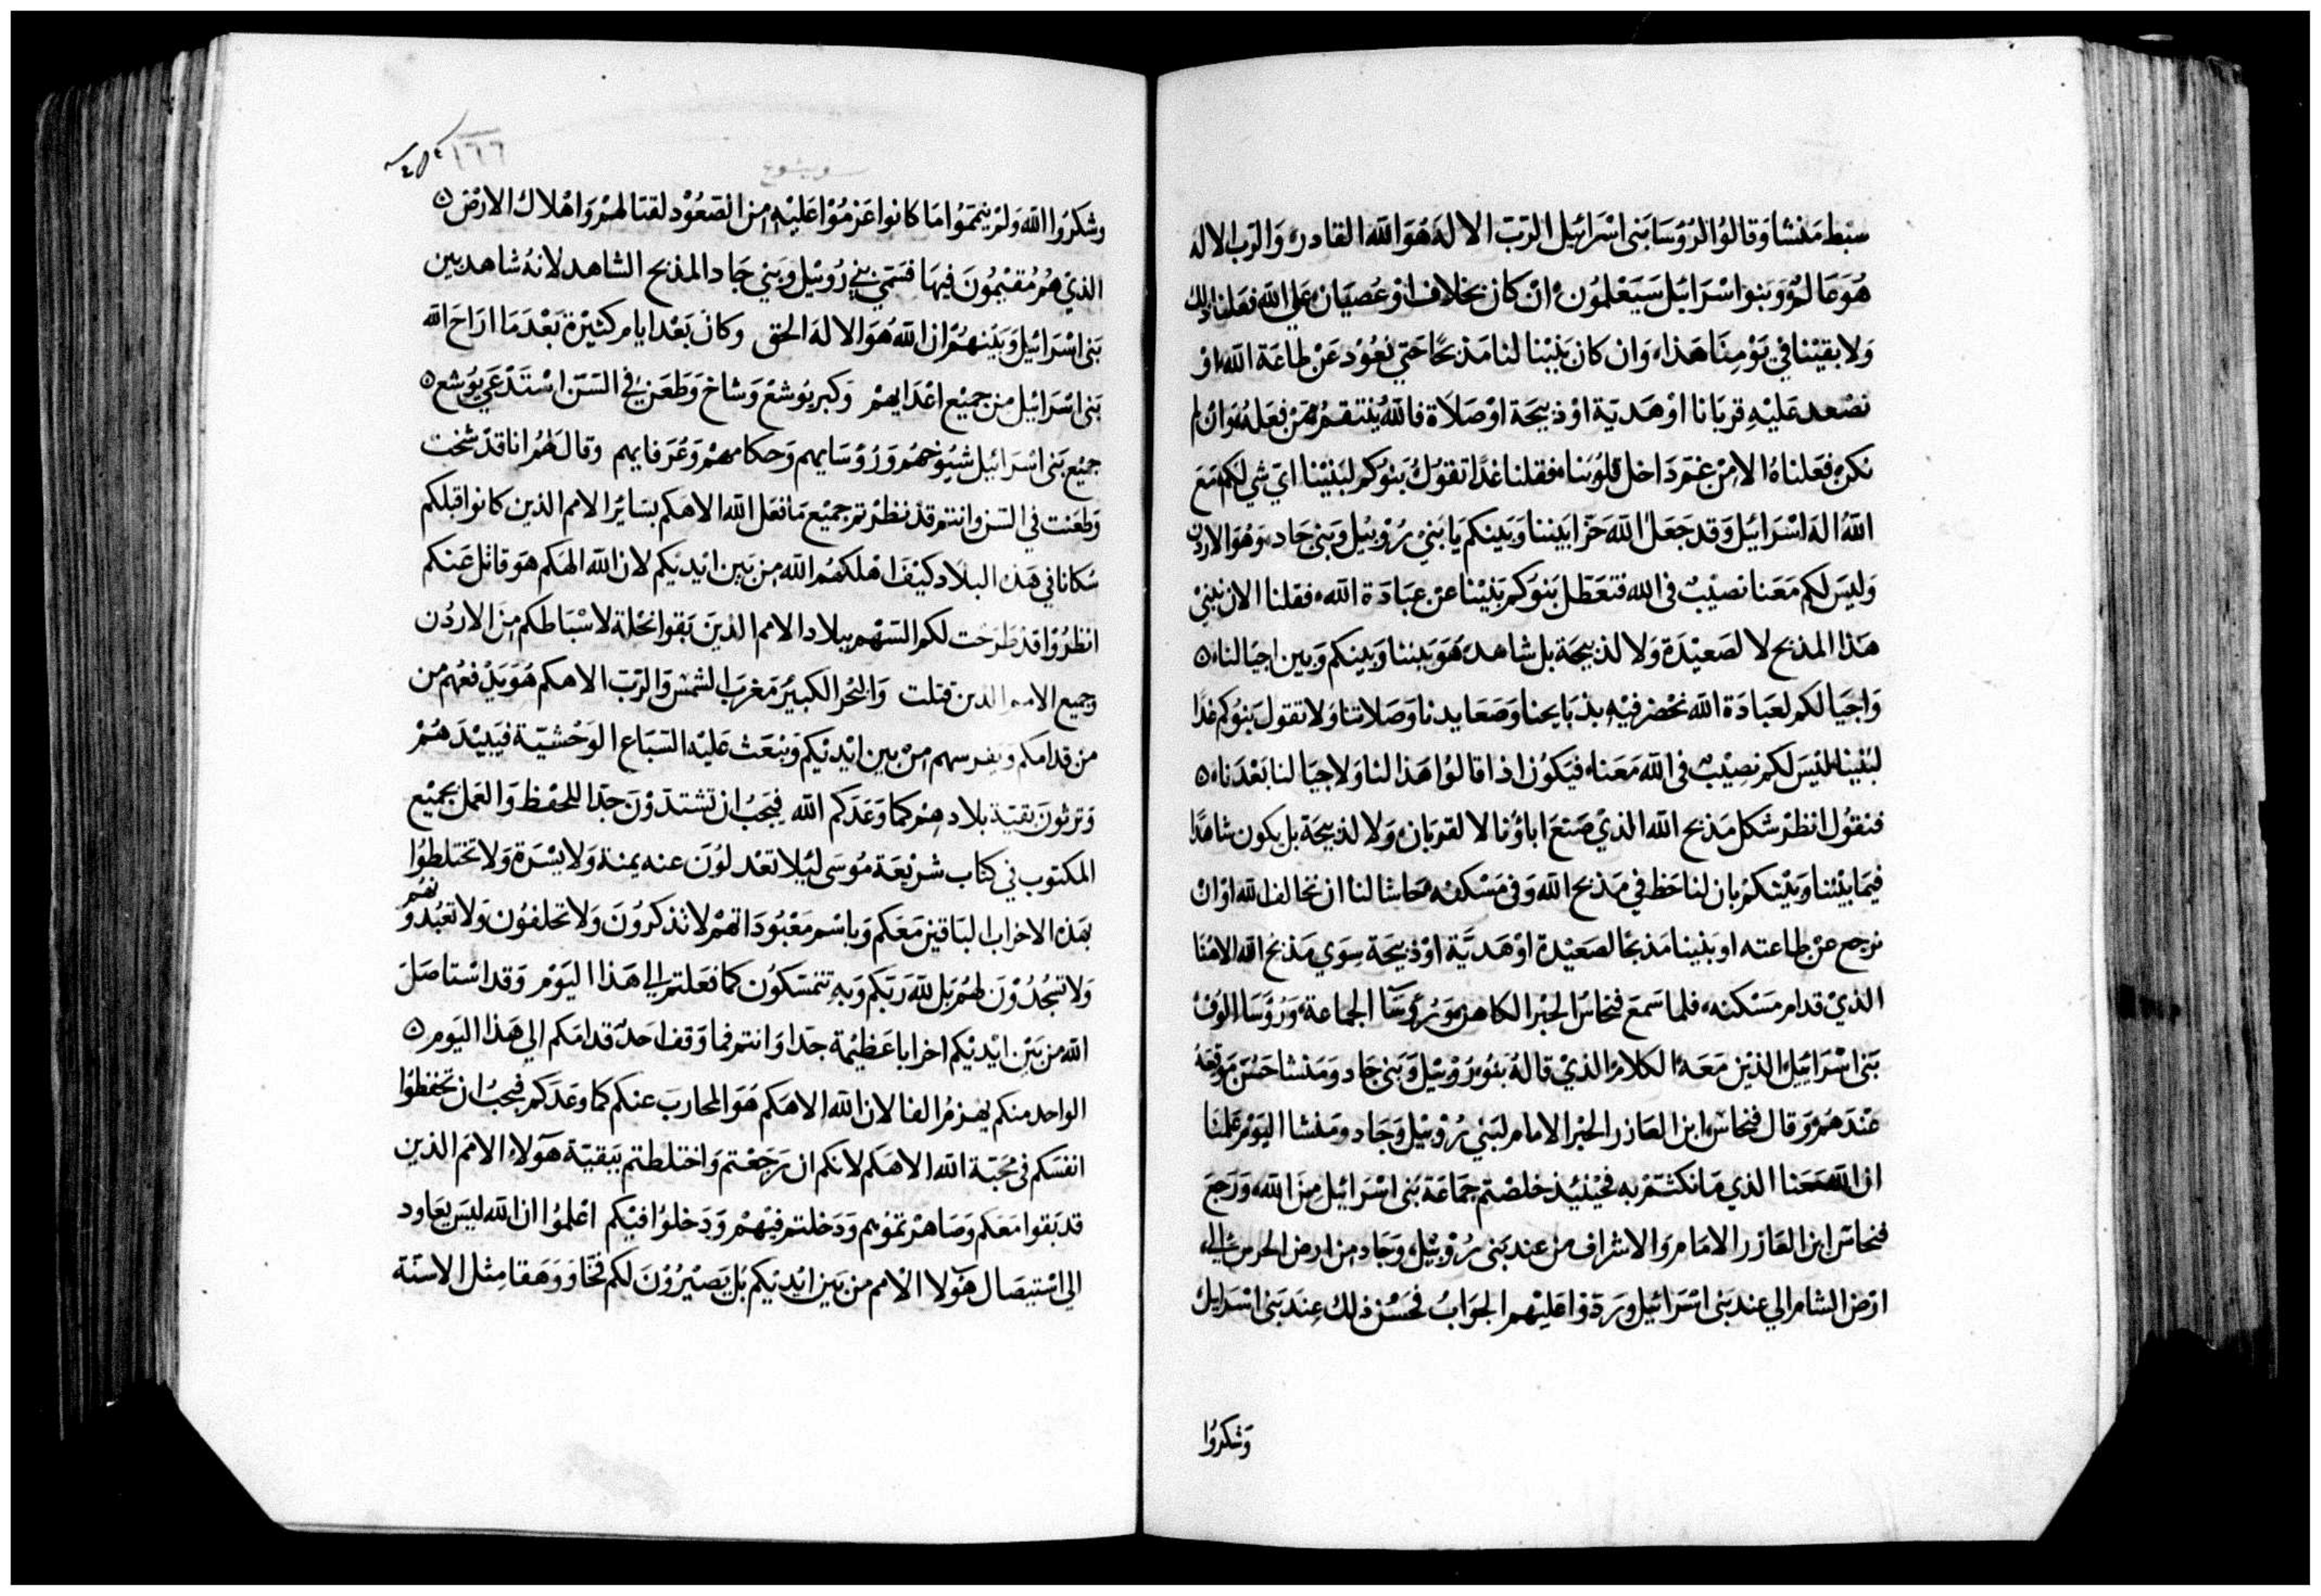 سبط منشا وقالوا لرؤسا بنى اسرائيل الرب الاله هو الله القادر والرب الاله
هو عالم وبنوا اسرائيل سيعلمون ان كان بخلاف او عصيان على الله فعلنا ذلك
ولا بقينا في يومنا هذا وان كان بنينا لنا مذبحًا حتى نعود عن طاعة الله او
نصعد عليه قربانا او هدية او ذبيحة او صلاة فالله ينتقم ممن فعله وان لم
نكن فعلناه الا من غم داخل قلوبنا فقلنا غدًا تقول بنوكم لبنينا اي شي لكم مع
الله اله اسرائيل وقد جعل الله حزا بيننا وبينكم يا بني روبيل وبني جاد وهو الاردن
وليس لكم معنا نصيب فى الله فتعطل بنوكم بنينا عن عبادة الله فقلنا الان نبني
هذا المذبح لا لصعيدة ولا لذبيحة بل شاهد هو بيننا وبينكم وبين اجيالنا
واجيالكم لعبادة الله نحضر فيه بذبايحنا وصعايدنا وصلاتنا ولا تقول بنوكم غدًا
لبنينا ليس لكم نصيب فى الله معنا فيكون اذا قالوا هذا لنا ولاجيالنا بعدنا
فنقول انظر شكل مذبح الله الذي صنع اباؤنا لا لقربان ولا لذبيحة بل يكون شاهدًا
فيما بيننا وبينكم بان لنا حظ في مذبح الله وفى مسكنه حاشا لنا ان نخالف الله او ان
نرجع عن طاعته او بنينا مذبحًا لصعيدة او هدية او ذبيحة سوي مذبح الله الاهنا
الذي قدام مسكنه فلما سمع فنحاس الحبر الكاهن ورؤسا الجماعة ورؤسا الوف
بنى اسرائيل الذين معه الكلام الذي قاله بنو روبيل وبنى جاد ومنشا حسن موقعه
عندهم وقال فنحاس ابن العازر الحبر الامام لبني روبيل وجاد ومنشا اليوم علمنا
ان الله معنا الذي ما نكثتم به فحينيذ خلصتم جماعة بنى اسرائيل من الله ورجع
فنحاس ابن العازر الامام والاشراف من عند بنى روبيل وجاد من ارض الحرس الى
ارض الشام الي عند بنى اسرائيل وردوا عليهم الجواب فحسن ذلك عند بنى اسرايل
وشكروا
ويشوع
١٦٦
وشكروا الله ولم يتموا ما كانوا عزموا عليه من الصعود لقتالهم واهلاك الارض
الذي هم مقيمون فيها فسمى بني روبيل وبني جاد المذبح الشاهد لانه شاهد بين
بنى اسرائيل وبينهم ان الله هو الاله الحق وكان بعد ايام كثيرة بعد ما اراح الله
بنى اسرائيل من جميع اعدايهم وكبر يوشع وشاخ وطعن في السن استدعي يوشع
جميع بنى اسرائيل شيوخهم ورؤسايهم وحكامهم وعرفايهم وقال لهم انا قد شخت
وطعنت في السن وانتم قد نظرتم جميع ما فعل الله الاهكم بسائر الامم الذين كانوا قبلكم
سكانا في هذه البلاد كيف اهلكهم الله من بين ايديكم لان الله الهكم هو قاتل عنكم
انظروا قد طرحت لكم السهم ببلاد الامم الذين بقوا نحلة لاسباطكم من الاردن
وجميع الامم الذين قتلت والبحر الكبير مغرب الشمس والرب الاهكم هو يدفعهم من
من قدامكم ويفرسهم من بين ايديكم ويبعث عليه السباع الوحشية فيبيدهم
وترثون بقية بلادهم كما وعدكم الله فيجب ان تشتدون جدا للحفظ والعمل بجميع
المكتوب في كتاب شريعة موسى ليلا تعدلون عنه يمنة ولا يسرة ولا تختلطوا
بهذه الاحزاب الباقين معكم وباسم معبوداتهم لا تذكرون ولا تحلفون ولا تعبدونهم
ولا تسجدون لهم بل لله ربكم وبه تتمسكون كما فعلتم الى هذا اليوم وقد استاصل
الله من بين ايديكم احزابا عظيمة جدا وانتم فما وقف احد قدامكم الي هذا اليوم
الواحد منكم يهزم الفا لان الله الاهكم هو المحارب عنكم كما وعدكم فيجب ان تحفظوا
انفسكم فى محبة الله الاهكم لانكم ان رجعتم واختلطتم ببقية هولاء الامم الذين
قد بقوا معكم وصاهرتموهم ودخلتم فيهم ودخلوا فيكم اعلموا ان الله ليس يعاود
الى استيصال هولا الامم من بين ايديكم بل يصيرون لكم فخا ووهقا مثل الاسنة